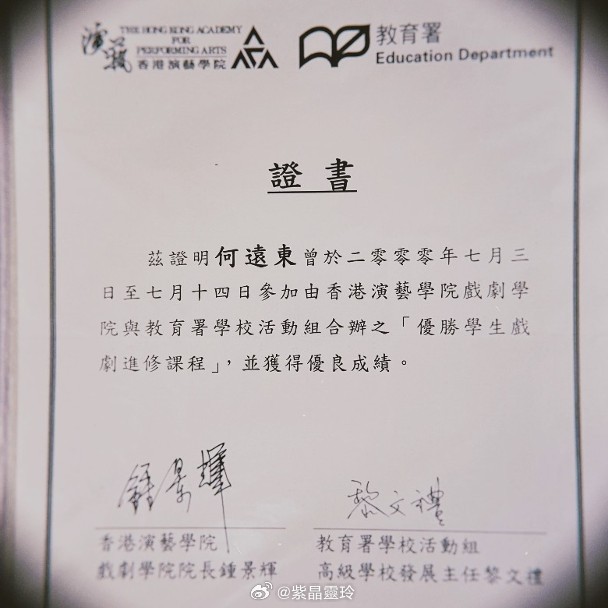 演藝
THE HONG KONG ACADEMY
FOR
PERFORMING ARTS
香港演藝學院
教育署
Education Department
證書
茲證明何遠東曾於二零零零年七月三
日至七月十四日參加由香港演藝學院戲劇學
院與教育署學校活動組合辦之「優勝學生戲
劇進修課程」，並獲得優良成績。
鍾景輝
黎文禮
香港演藝學院
戲劇學院院長鍾景輝
教育署學校活動組
高級學校發展主任黎文禮
@紫晶靈玲